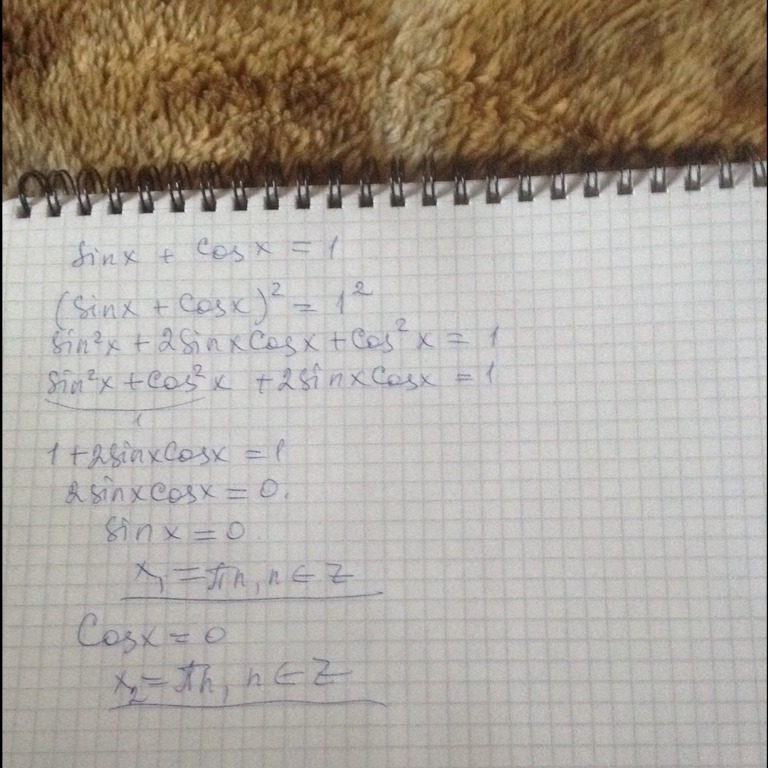 sinx + cosx = 1
(sinx + cosx)² = 1²
sin²x + 2sinxcosx + cos²x = 1
sin²x + cos²x + 2sinxcosx = 1
1
1 + 2sinxcosx = 1
2sinxcosx = 0.
sinx = 0.
x₁ = πn, n ∈ Z
cosx = 0
x₂ = πn, n ∈ Z